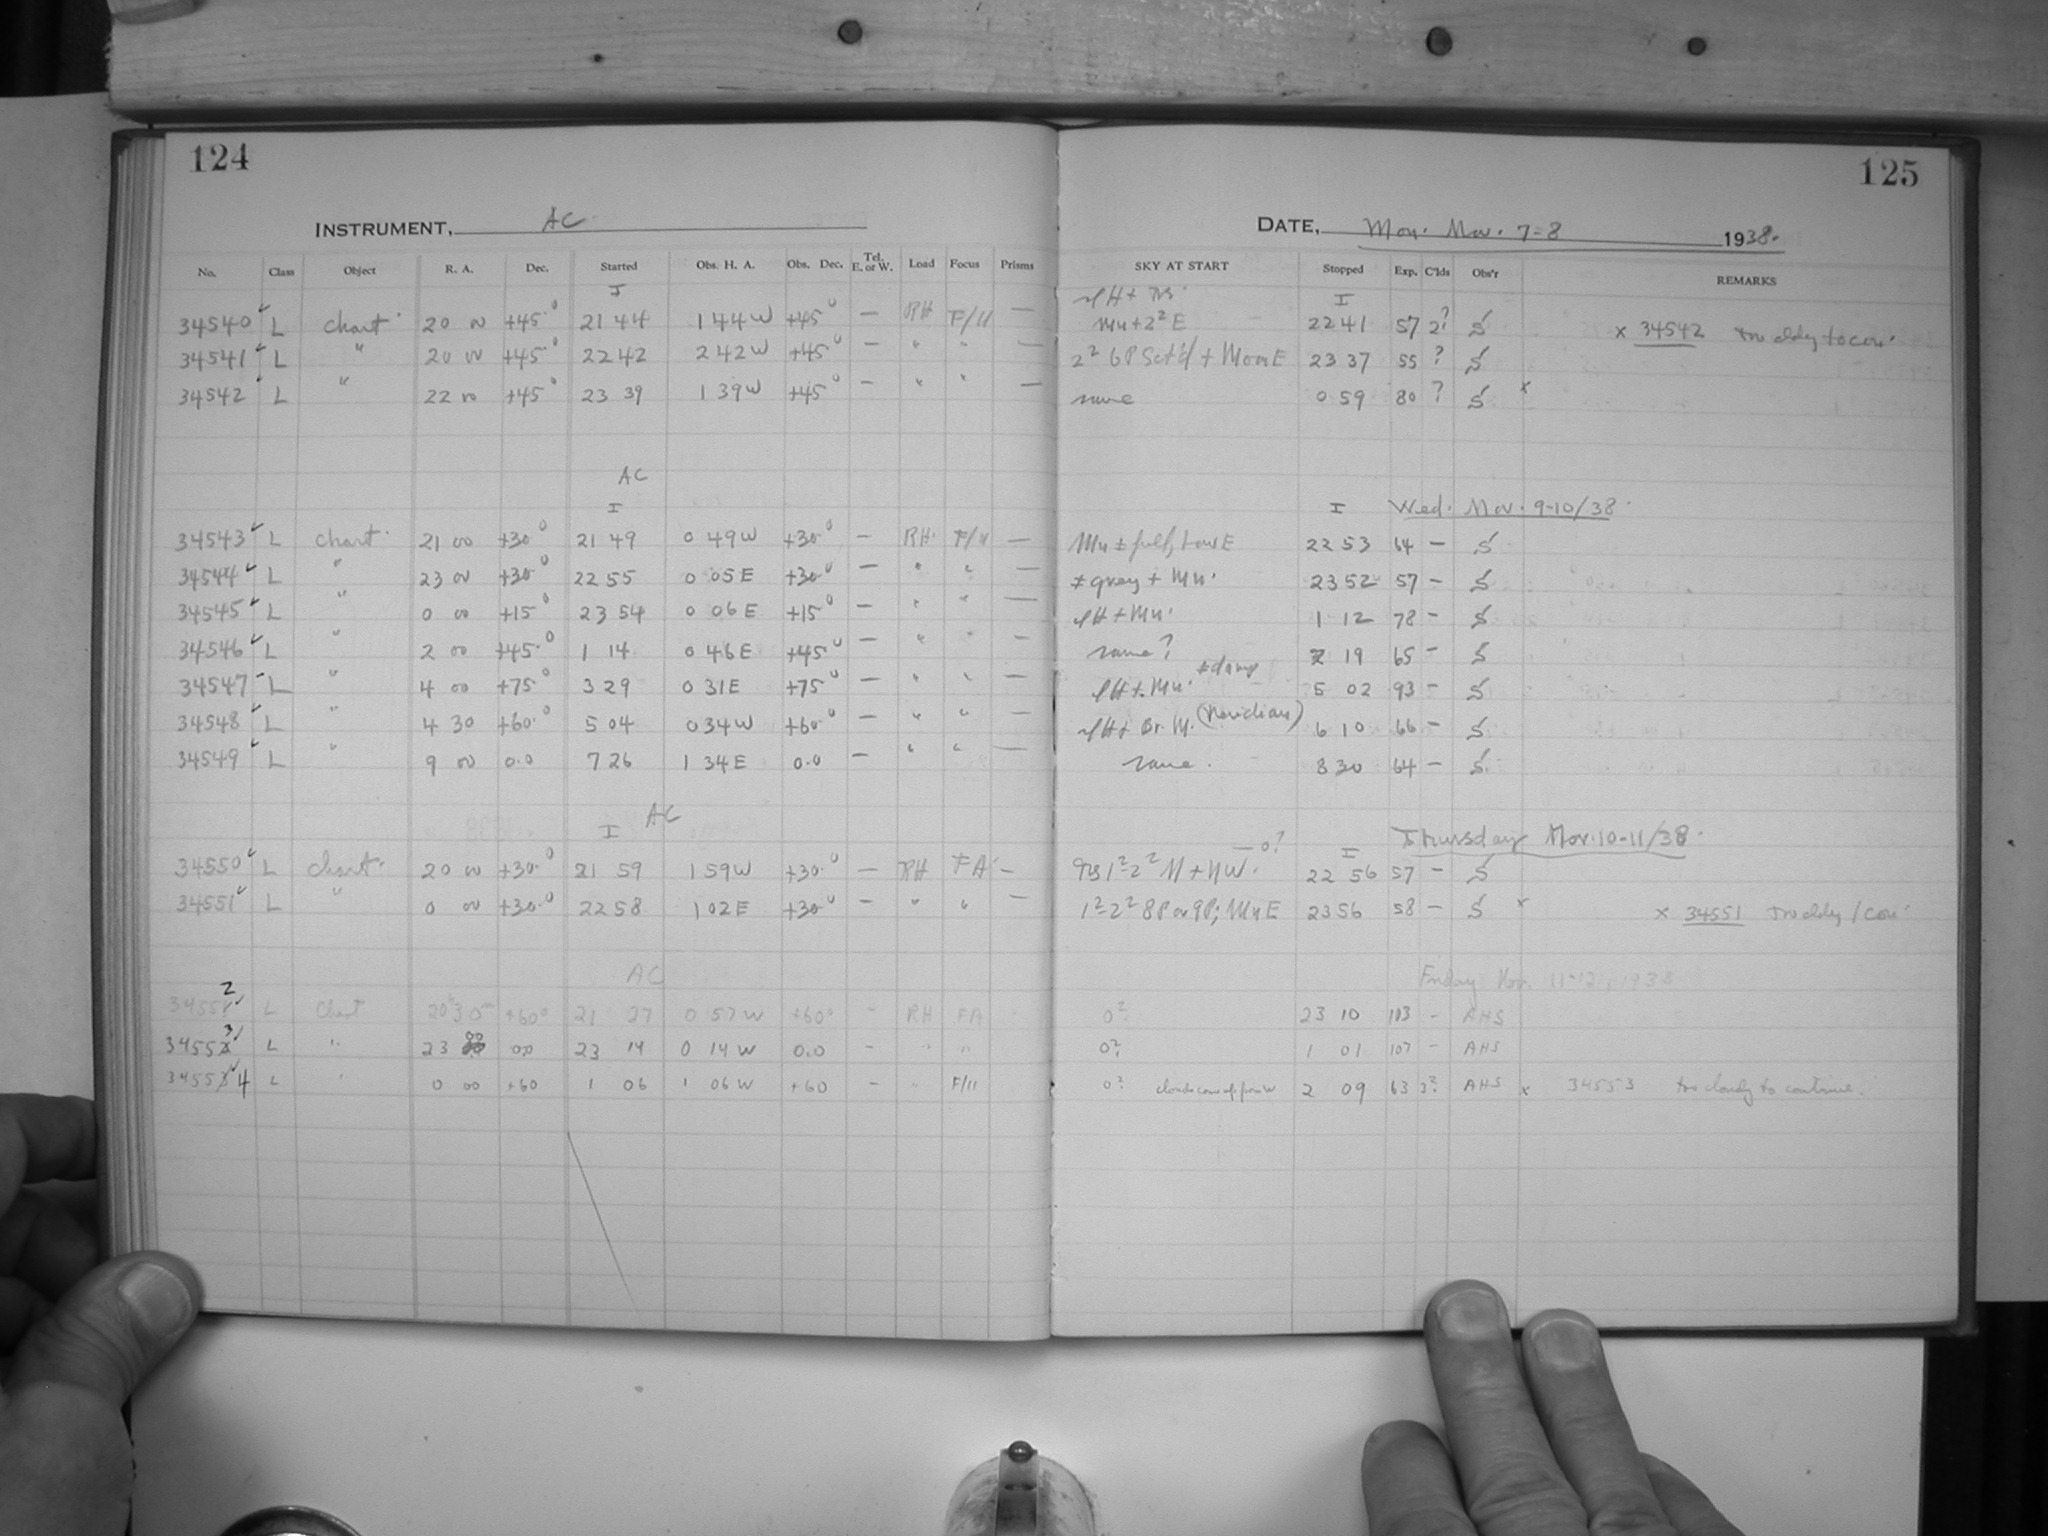 124
INSTRUMENT, AC
No. Class Object R. A. Dec. Started Obs. H. A. Obs. Dec. Tel. E. or W. Load Focus Prisms
I
34540 L chart 20 00 +45° 21 44 1 44 W +45° — RH F/11 —
34541 L " 20 00 +45° 22 42 2 42 W +45° — " " —
34542 L " 22 00 +45° 23 39 1 39 W +45° — " " —
AC
I
34543 L chart 21 00 +30° 21 49 0 49 W +30° — RH F/11 —
34544 L " 23 00 +30° 22 55 0 05 E +30° — " " —
34545 L " 0 00 +15° 23 54 0 06 E +15° — " " —
34546 L " 2 00 +45° 1 14 0 46 E +45° — " " —
34547 L " 4 00 +75° 3 29 0 31 E +75° — " " —
34548 L " 4 30 +60° 5 04 0 34 W +60° — " " —
34549 L " 9 00 0.0 7 26 1 34 E 0.0 — " " —
AC
I
34550 L chart 20 00 +30° 21 59 1 59 W +30° — RH FA —
34551 L " 0 00 +30° 22 58 1 02 E +30° — " " —
AC
34552 L Chart 20h 30m +60° 21 27 0 57 W +60° - RH FA
34553 L " 23 00 0.0 23 14 0 14 W 0.0 - " "
34554 L " 0 00 +60 1 06 1 06 W +60 - " F/11
125
DATE, Mon. Nov. 7-8 1938.
SKY AT START Stopped Exp. C'lds Obs'r REMARKS
I
+ 2² E 22 41 57 2? S x 34542 too cldy to con.
2² 6P Sct'd + Moon E 23 37 55 ? S
same 0 59 80 ? S x
I Wed. Nov. 9-10/38
Mn ± full, low E 22 53 64 — S
± gray + Mn. 23 52 57 — S
+ Mn. 1 12 78 — S
same? 2 19 65 — S
+ Mn. ± damp 5 02 93 — S
+ Br. M. (Meridian) 6 10 66 — S
same. 8 30 64 — S
I Thursday Nov. 10-11/38
— 0?
1²-2² N + NW. 22 56 57 — S
1²-2² 8P or 9P; Mn E 23 56 58 — S x x 34551 too cldy / con.
Friday Nov. 11-12, 1938
0? 23 10 103 - AHS
0? 1 01 107 - AHS
0? clouds come up from W 2 09 63 3? AHS x 34553 too cloudy to continue.